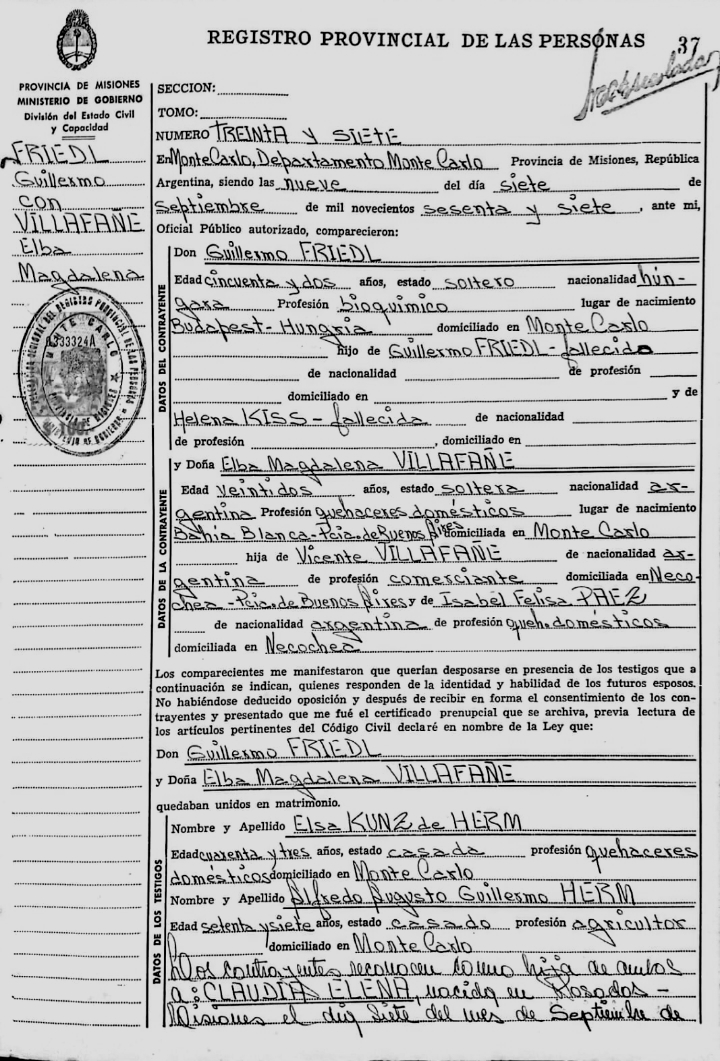 REGISTRO PROVINCIAL DE LAS PERSONAS 37
PROVINCIA DE MISIONES
MINISTERIO DE GOBIERNO
División del Estado Civil
y Capacidad
FRIEDL
Guillermo
con
VILLAFAÑE
Elba
Magdalena
MONTE CARLO
A333324A
SECCION:
TOMO:
NUMERO TREINTA Y SIETE
En Monte Carlo, Departamento Monte Carlo Provincia de Misiones, República
Argentina, siendo las nueve del día siete de
Septiembre de mil novecientos sesenta y siete, ante mi,
Oficial Público autorizado, comparecieron:
DATOS DEL CONTRAYENTE
Don Guillermo FRIEDL
Edad cincuenta y dos años, estado soltero nacionalidad hún-
gara Profesión bioquímico lugar de nacimiento
Budapest-Hungria domiciliado en Monte Carlo
hijo de Guillermo FRIEDL-fallecido
de nacionalidad de profesión
domiciliado en y de
Helena KISS-fallecida de nacionalidad
de profesión, domiciliado en
DATOS DE LA CONTRAYENTE
y Doña Elba Magdalena VILLAFAÑE
Edad veintidos años, estado soltera nacionalidad ar-
gentina Profesión quehaceres domésticos lugar de nacimiento
Bahía Blanca-Pcia. de Buenos Aires domiciliada en Monte Carlo
hija de Vicente VILLAFAÑE de nacionalidad ar-
gentina de profesión comerciante domiciliada en Neco-
chea-Pcia. de Buenos Aires y de Isabel Felisa PAEZ
de nacionalidad argentina de profesión queh. domésticos
domiciliada en Necochea
Los comparecientes me manifestaron que querían desposarse en presencia de los testigos que a
continuación se indican, quienes responden de la identidad y habilidad de los futuros esposos.
No habiéndose deducido oposición y después de recibir en forma el consentimiento de los con-
trayentes y presentado que me fué el certificado prenupcial que se archiva, previa lectura de
los artículos pertinentes del Código Civil declaré en nombre de la Ley que:
Don Guillermo FRIEDL
y Doña Elba Magdalena VILLAFAÑE
quedaban unidos en matrimonio.
DATOS DE LOS TESTIGOS
Nombre y Apellido Elsa KUNZ de HERM
Edad cuarenta y tres años, estado casada profesión quehaceres
domésticos domiciliado en Monte Carlo
Nombre y Apellido Alfredo Augusto Guillermo HERM
Edad setenta y siete años, estado casado profesión agricultor
domiciliado en Monte Carlo
Los contrayentes reconocen como hija de ambos
a: CLAUDIA ELENA, nacida en Posadas-
Misiones el día siete del mes de Septiembre de